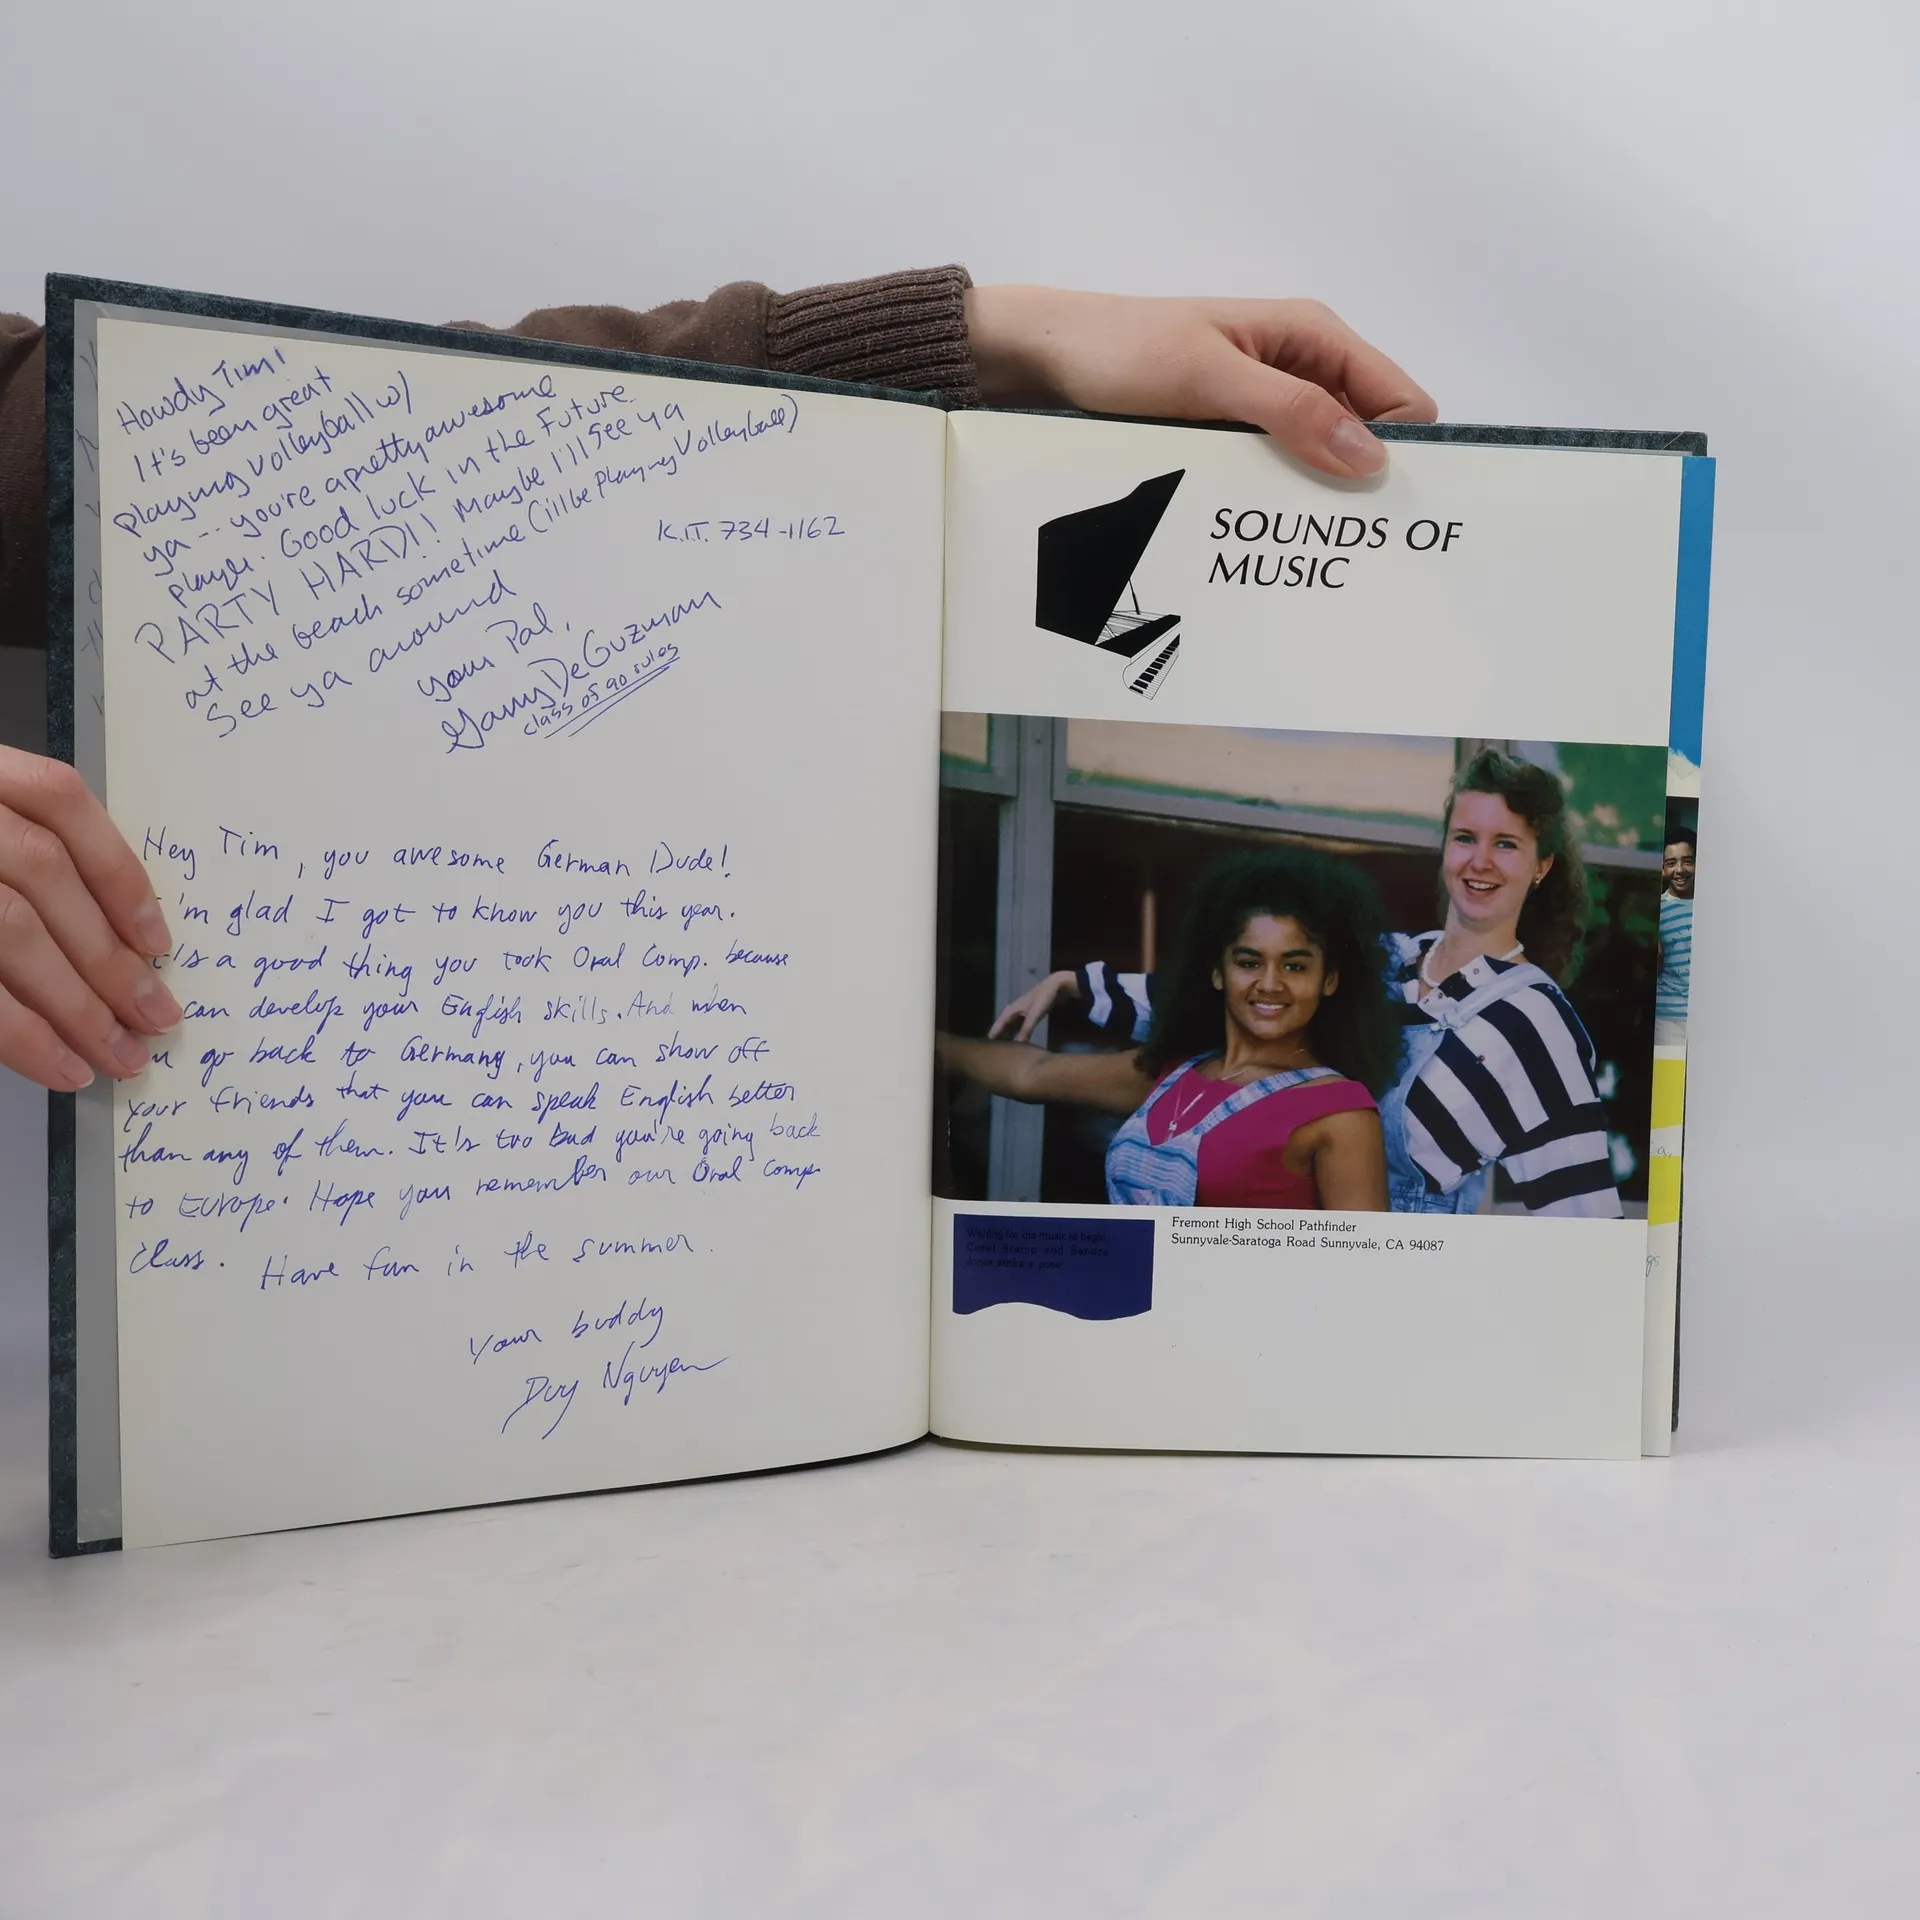 Howdy Tim!
It's been great
playing Volleyball w/
ya -- you're a pretty awesome
player. Good luck in the Future.
PARTY HARD!! Maybe I'll See ya
at the beach sometime (i'll be playing Volleyball)
See ya around
your Pal,
DeGuzman
class of 90 rules
K.I.T. 734-1162
Hey Tim, you awesome German Dude!
'm glad I got to know you this year.
's a good thing you took Oral Comp. because
can develop your English skills. And when
go back to Germany, you can show off
your friends that you can speak English better
than any of them. It's too bad you're going back
to Europe. Hope you remember our Oral Comp
Class. Have fun in the summer.
Your buddy
Duy Nguyen
SOUNDS OF
MUSIC
Waiting for the music to begin,
Carol Stump and Sandra
Jones strike a pose
Fremont High School Pathfinder
Sunnyvale-Saratoga Road Sunnyvale, CA 94087